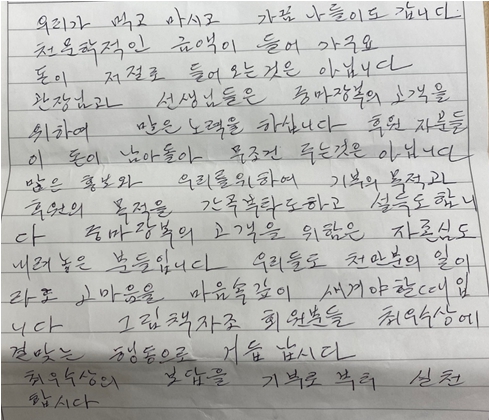 우리가 먹고 마시고 가끔 나들이도 갑니다.
천문학적인 금액이 들어 가구요
돈이 저절로 들어오는것은 아닙니다
관장님과 선생님들은 중마장복의 고객을
위하여 많은 노력을 하십니다 후원 자분들
이 돈이 남아돌아 무조건 주는것은 아닙니다
많은 홍보와 우리를위하여 기부의 목적과
후원의 목적을 간곡부탁도하고 설득도합니
다 중마장복의 고객을 위함은 자존심도
내려놓은 분들입니다 우리들도 천만분의 일이
라도 고마움을 마음속깊이 새겨야할때입
니다 그림책자조 회원분들 최우수상에
걸맞는 행동으로 거듭 납시다
최우수상의 보답을 기부로 부터 실천
합시다